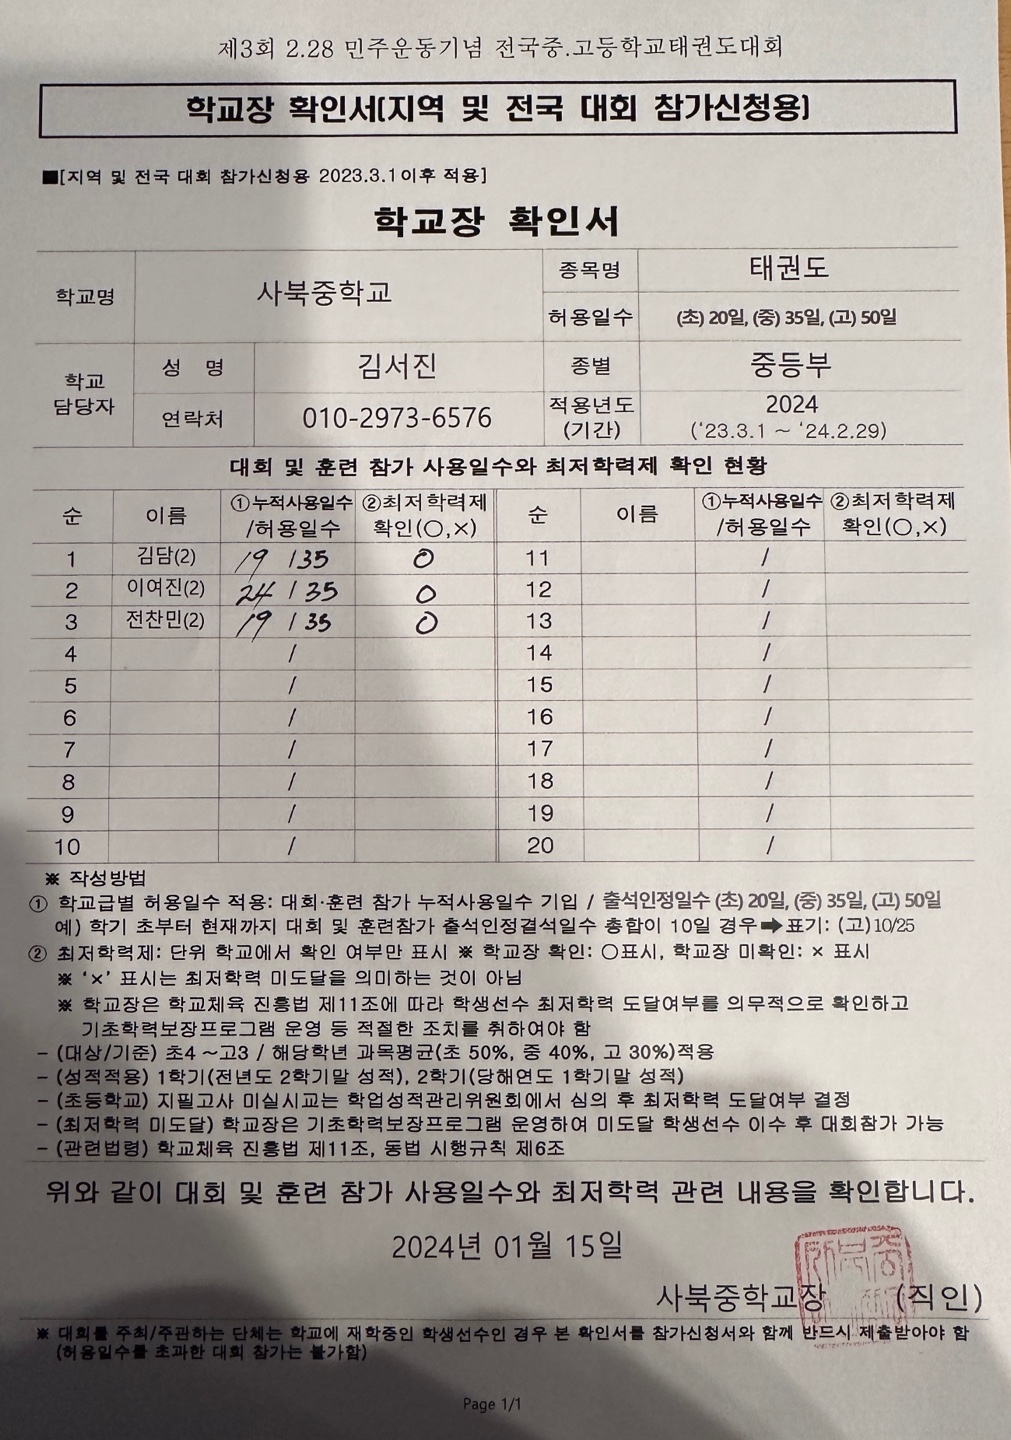 제3회 2.28 민주운동기념 전국중.고등학교태권도대회
학교장 확인서[지역 및 전국 대회 참가신청용]
■[지역 및 전국 대회 참가신청용 2023.3.1이후 적용]
학교장 확인서
학교명 사북중학교 종목명 태권도
허용일수 (초) 20일, (중) 35일, (고) 50일
학교 담당자 성 명 김서진 종별 중등부
연락처 010-2973-6576 적용년도 (기간) 2024 (‘23.3.1 ~ ‘24.2.29)
대회 및 훈련 참가 사용일수와 최저학력제 확인 현황
순 이름 ①누적사용일수 /허용일수 ②최저학력제 확인(○,×) 순 이름 ①누적사용일수 /허용일수 ②최저학력제 확인(○,×)
1 김담(2) 19 / 35 O 11 /
2 이여진(2) 24 / 35 O 12 /
3 전찬민(2) 19 / 35 O 13 /
4 / 14 /
5 / 15 /
6 / 16 /
7 / 17 /
8 / 18 /
9 / 19 /
10 / 20 /
※ 작성방법
① 학교급별 허용일수 적용: 대회·훈련 참가 누적사용일수 기입 / 출석인정일수 (초) 20일, (중) 35일, (고) 50일
예) 학기 초부터 현재까지 대회 및 훈련참가 출석인정결석일수 총합이 10일 경우➡표기: (고)10/25
② 최저학력제: 단위 학교에서 확인 여부만 표시 ※ 학교장 확인: ○표시, 학교장 미확인: × 표시
※ ‘×’ 표시는 최저학력 미도달을 의미하는 것이 아님
※ 학교장은 학교체육 진흥법 제11조에 따라 학생선수 최저학력 도달여부를 의무적으로 확인하고
기초학력보장프로그램 운영 등 적절한 조치를 취하여야 함
- (대상/기준) 초4 ~고3 / 해당학년 과목평균(초 50%, 중 40%, 고 30%)적용
- (성적적용) 1학기(전년도 2학기말 성적), 2학기(당해연도 1학기말 성적)
- (초등학교) 지필고사 미실시교는 학업성적관리위원회에서 심의 후 최저학력 도달여부 결정
- (최저학력 미도달) 학교장은 기초학력보장프로그램 운영하여 미도달 학생선수 이수 후 대회참가 가능
- (관련법령) 학교체육 진흥법 제11조, 동법 시행규칙 제6조
위와 같이 대회 및 훈련 참가 사용일수와 최저학력 관련 내용을 확인합니다.
2024년 01월 15일
사북중학교장 (직인)
※ 대회를 주최/주관하는 단체는 학교에 재학중인 학생선수인 경우 본 확인서를 참가신청서와 함께 반드시 제출받아야 함
(허용일수를 초과한 대회 참가는 불가함)
Page 1/1